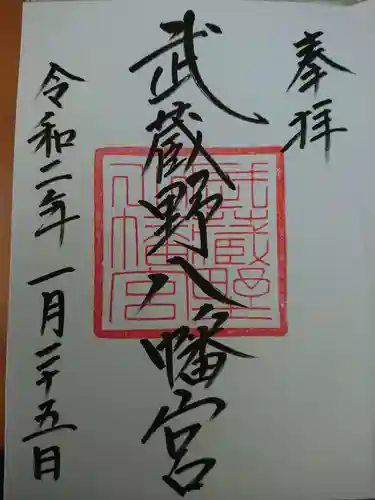 奉拝
武蔵野八幡宮
武蔵野八幡宮
令和二年一月二十五日